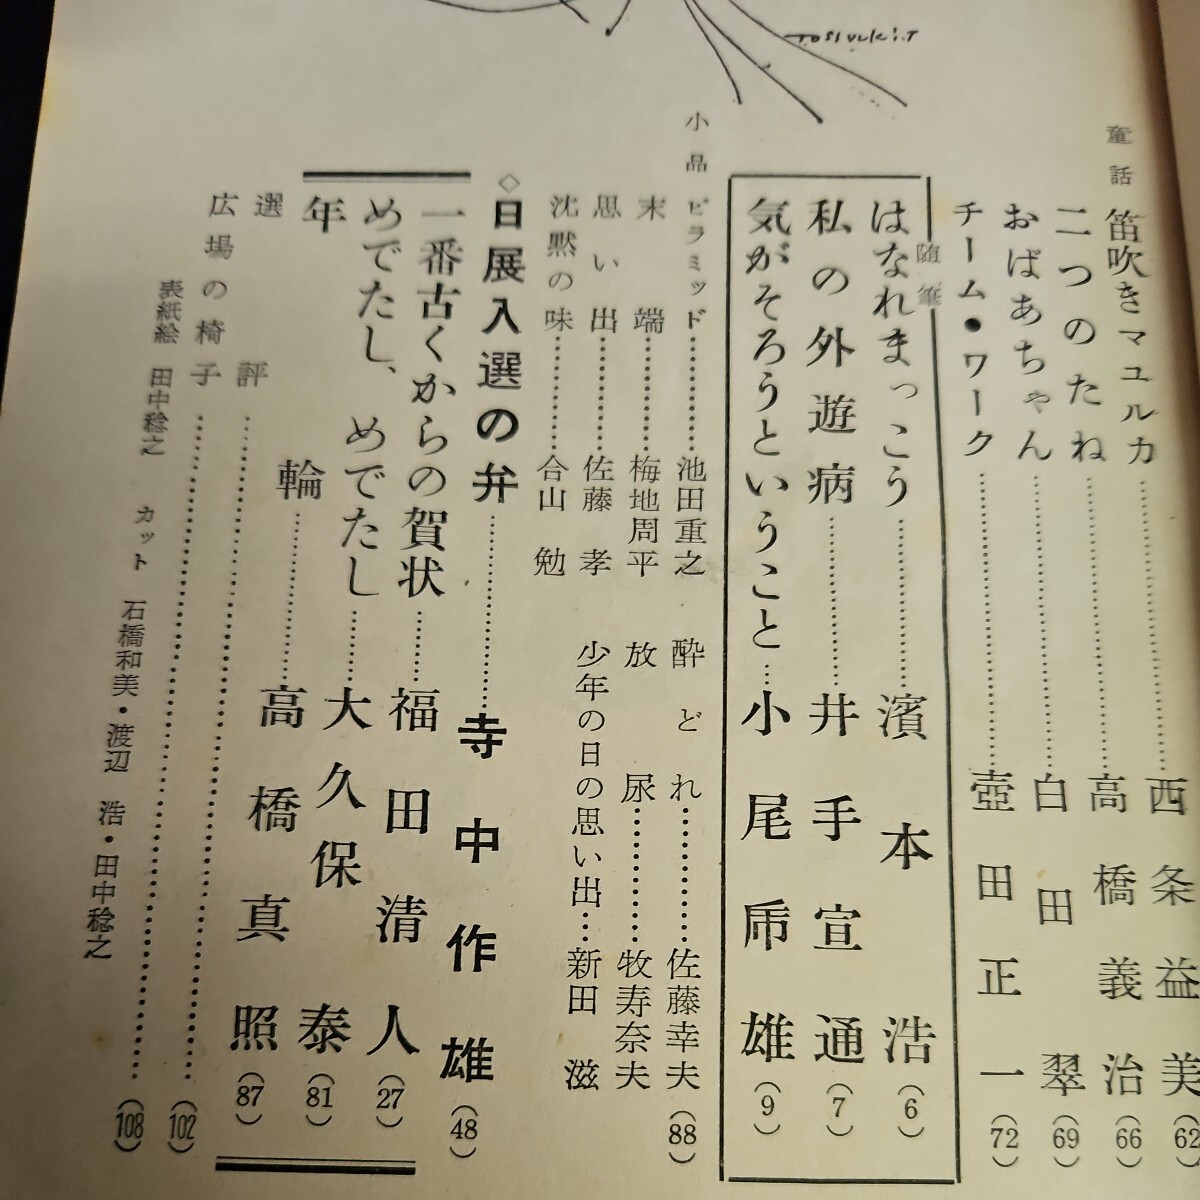 TOSIYUKI.T
童話
笛吹きマユルカ……西条益美(62)
二つのたね……高橋義治(66)
おばあちゃん……白田翠(69)
チーム・ワーク……壺田正一(72)
随筆
はなれまっこう……濱本浩(6)
私の外遊病……井手宣通(7)
気がそろうということ……小尾乕雄(9)
小品
ピラミッド……池田重之
末端……梅地周平
思い出……佐藤孝
沈黙の味……合山勉
酔どれ……佐藤幸夫(88)
放尿……牧寿奈夫
少年の日の思い出…新田滋
◇日展入選の弁……寺中作雄(48)
一番古くからの賀状……福田清人(27)
めでたし、めでたし……大久保泰(81)
年輪……高橋真照(87)
選評……(102)
広場の椅子……(108)
表紙絵 田中稔之 カット 石橋和美・渡辺浩・田中稔之